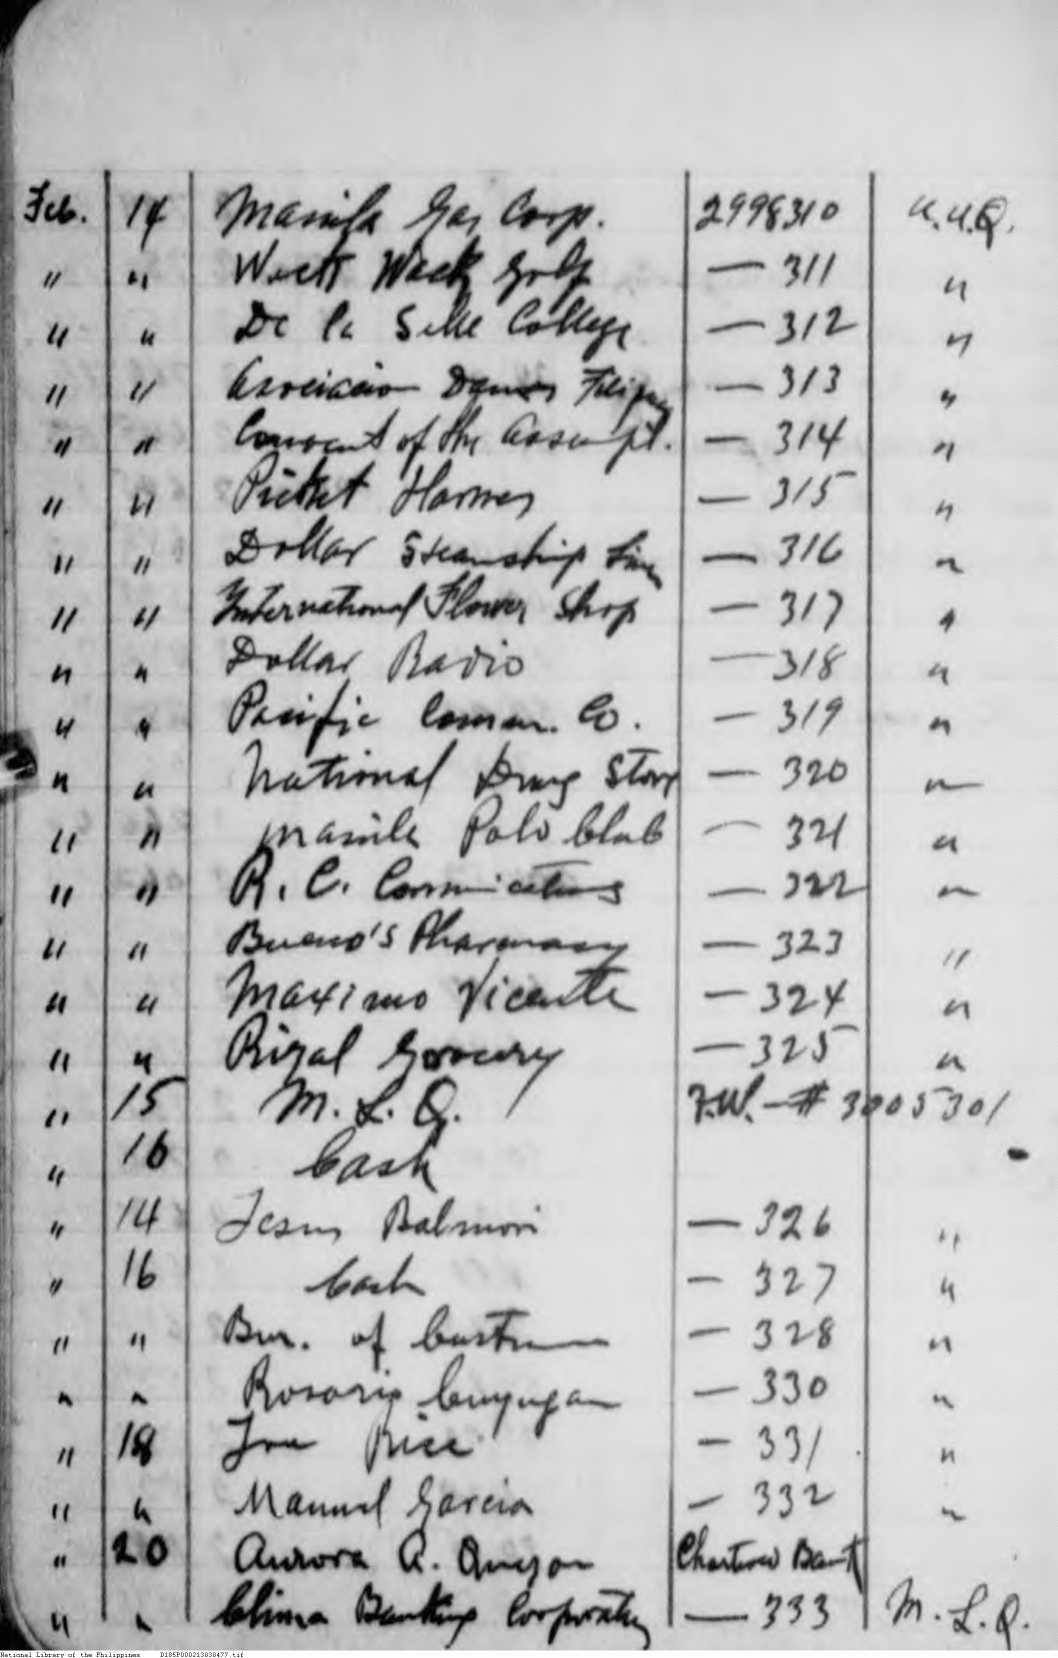 Feb. 14 Manila Gas Corp. 2998310 A.A.Q.
" " Wack Wack Golf — 311 "
" " De La Salle College — 312 "
" " Asociacion Damas Filipinas — 313 "
" " Convent of the Assumpt. — 314 "
" " — 315 "
" " Dollar Steamship Line — 316 "
" " International Flower Shop — 317 "
" " Dollar Radio — 318 "
" " Pacific Comm. Co. — 319 "
" " National Drug Store — 320 "
" " Manila Polo Club — 321 "
" " R. C. Communications — 322 "
" " Bueno's Pharmacy — 323 "
" " Maximo Vicente — 324 "
" " Rizal Grocery — 325 "
" 15 M. L. Q. F.W. — # 3005301
" 16 Cash
" 14 Jesus Balmori — 326 "
" 16 Cash — 327 "
" " Bur. of Customs — 328 "
" " Rosario Cunyugan — 330 "
" 18 Rice — 331 "
" " Manuel Garcia — 332 "
" 20 Aurora A. Quezon Chartered Bank
" " China Banking Corporation — 333 M. L. Q.
National Library of the Philippines D185P000213038477.tif